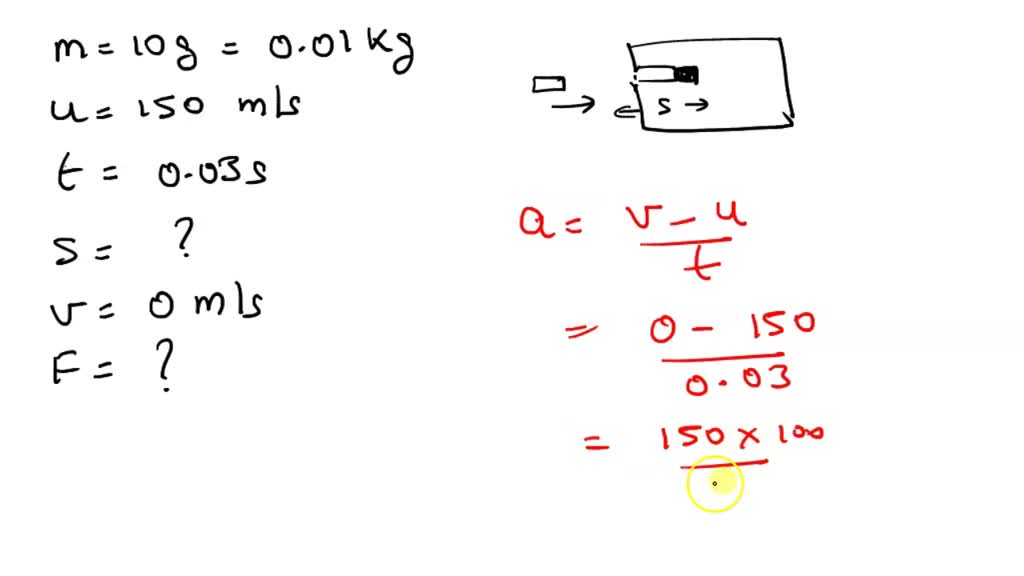 m = 10g = 0.01 kg
u = 150 m/s
t = 0.03s
s = ?
v = 0 m/s
F = ?
s
a = v - u / t
= 0 - 150 / 0.03
= 150 x 100